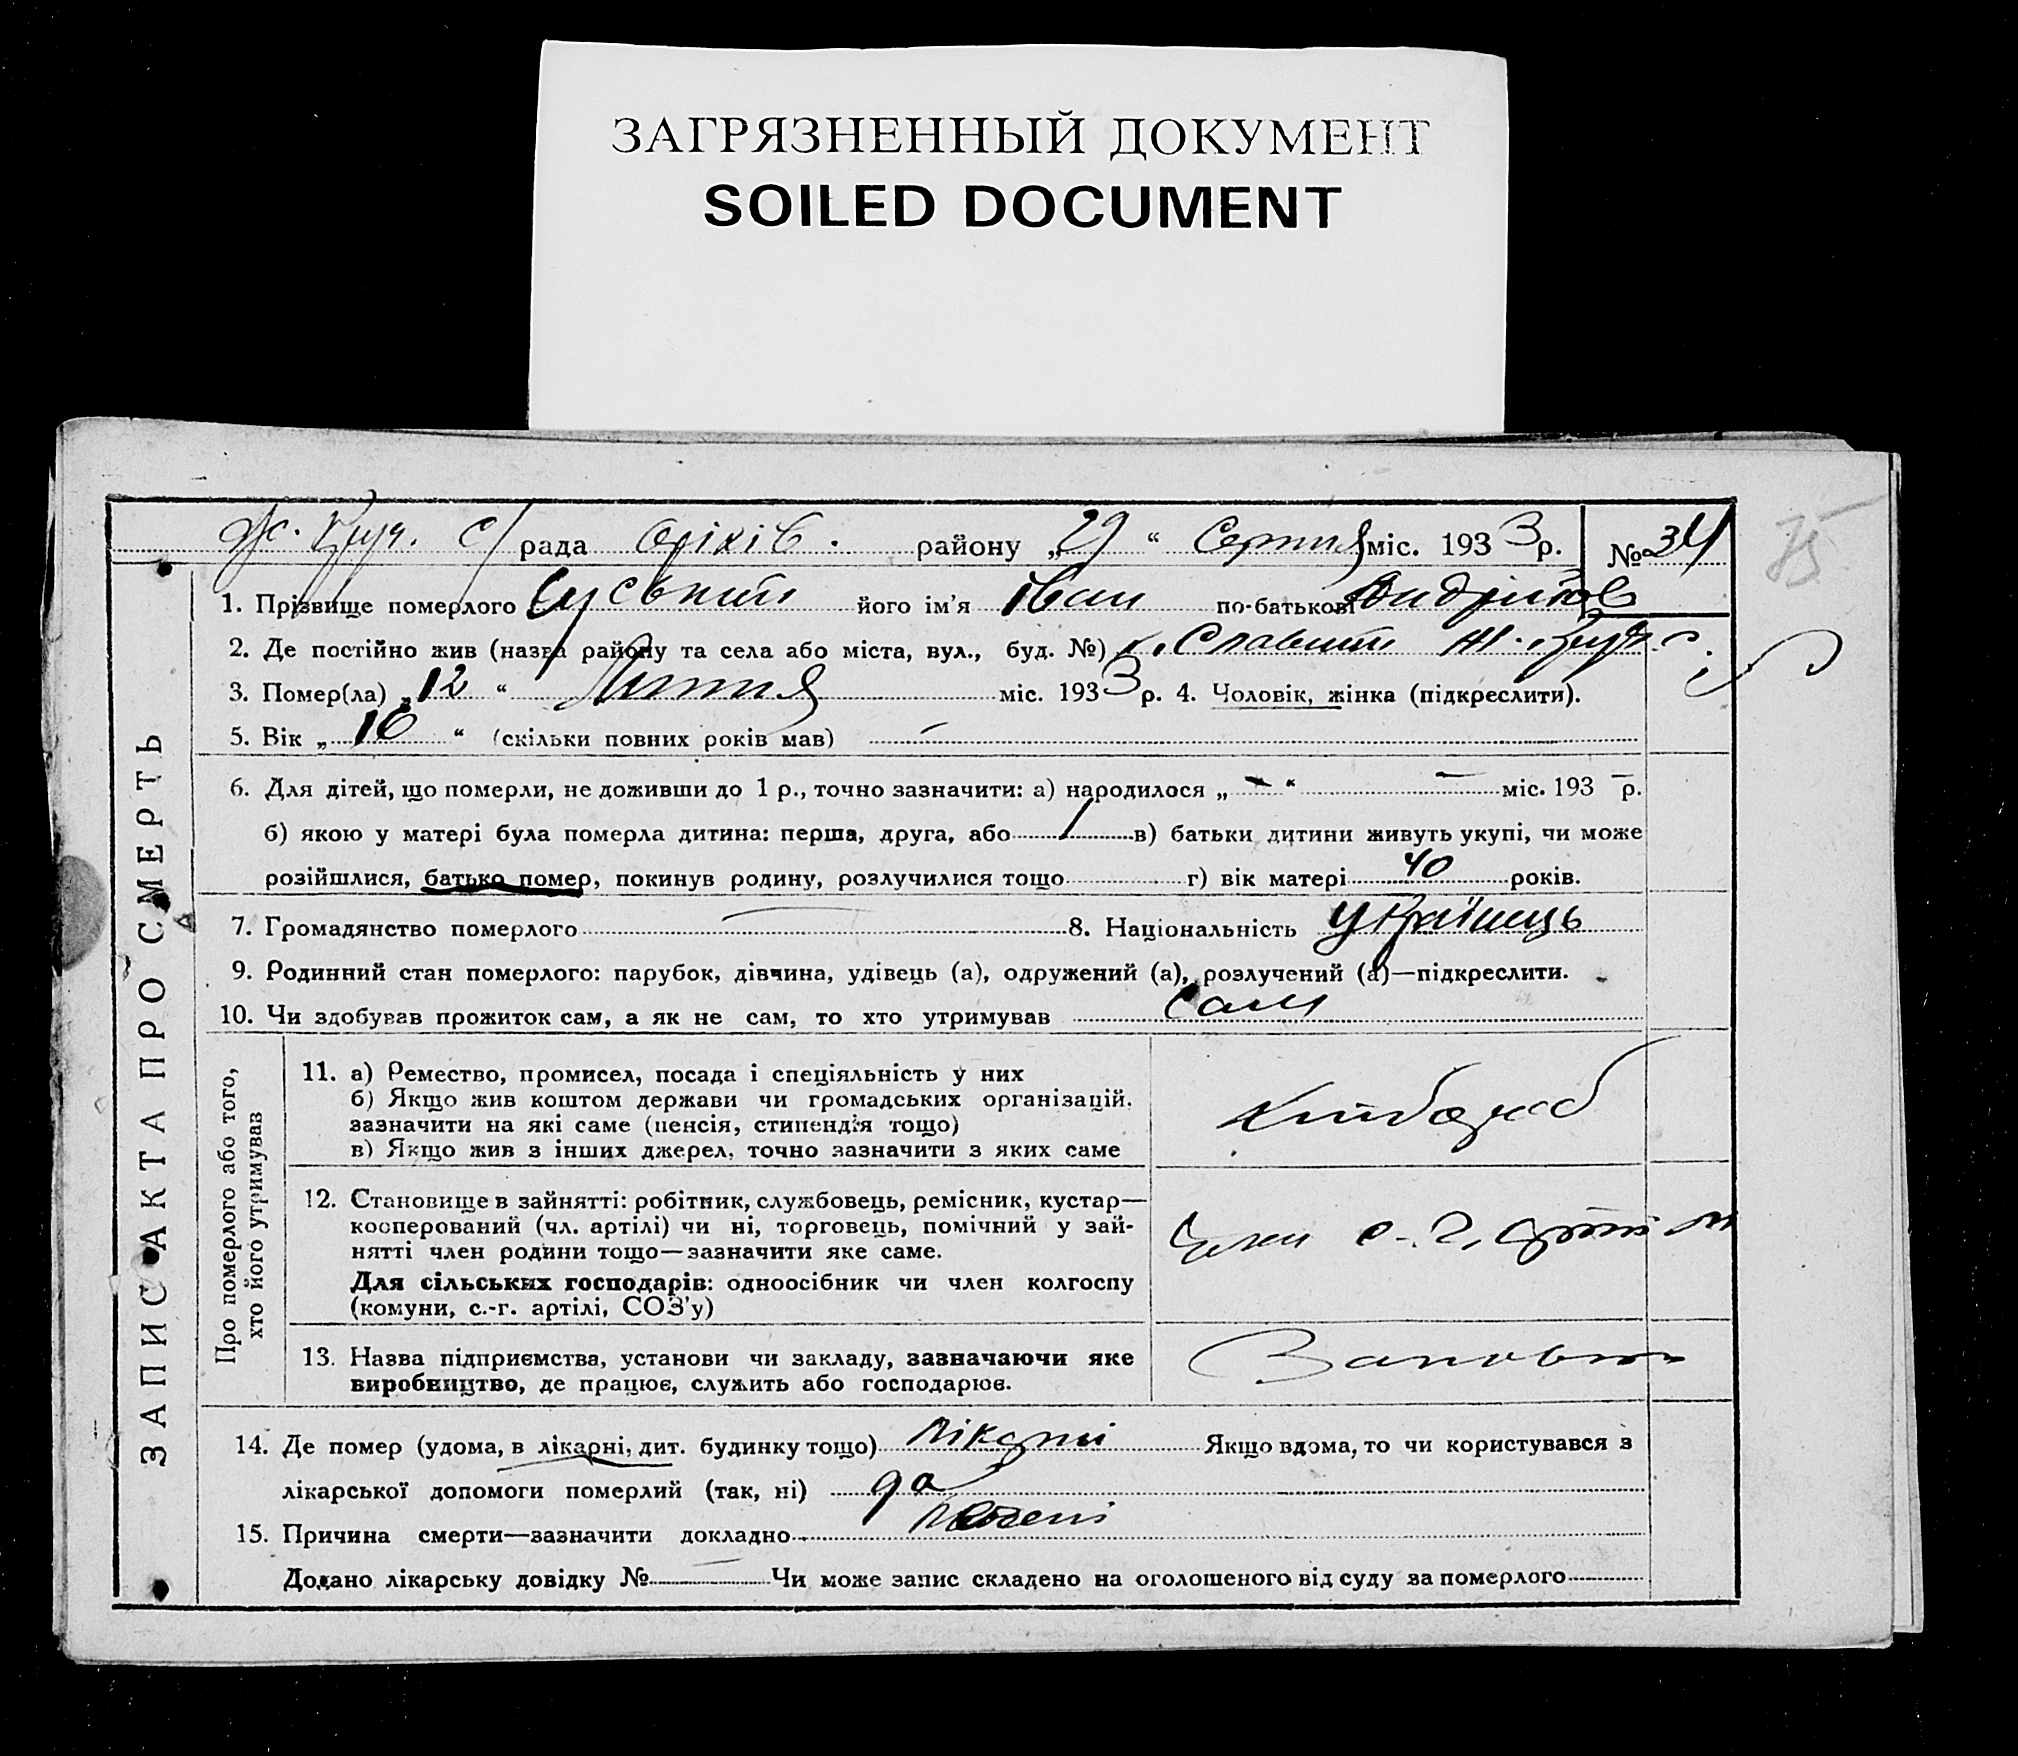 ЗАГРЯЗНЕННЫЙ ДОКУМЕНТ
SOILED DOCUMENT
75
с/рада Оріхів. району „29“ Серпня міс. 1933 р. № 34
1. Прізвище померлого його ім'я Іван по-батькові
2. Де постійно жив (назва району та села або міста, вул., буд. №)
3. Помер(ла) „12“ Липня міс. 1933 р. 4. Чоловік, жінка (підкреслити).
5. Вік „16“ (скільки повних років мав) —
6. Для дітей, що померли, не доживши до 1 р., точно зазначити: а) народилося „—“ — міс. 193 — р.
б) якою у матері була померла дитина: перша, друга, або / в) батьки дитини живуть укупі, чи може
розійшлися, батько помер, покинув родину, розлучилися тощо г) вік матері 40 років.
7. Громадянство померлого — 8. Національність Українець
9. Родинний стан померлого: парубок, дівчина, удівець (а), одружений (а), розлучений (а)—підкреслити.
10. Чи здобував прожиток сам, а як не сам, то хто утримував сам
ЗАПИС АКТА ПРО СМЕРТЬ
Про померлого або того,
хто його утримував
11. а) Ремество, промисел, посада і спеціяльність у них
б) Якщо жив коштом держави чи громадських організацій,
зазначити на які саме (пенсія, стипендія тощо)
в) Якщо жив з інших джерел, точно зазначити з яких саме
Хлібороб
12. Становище в зайнятті: робітник, службовець, ремісник, кустар—
кооперований (чл. артілі) чи ні, торговець, помічний у зай-
нятті член родини тощо—зазначити яке саме.
Для сільських господарів: одноосібник чи член колгоспу
(комуни, с.-г. артілі, СОЗ'у)
Член с-г. артілі
13. Назва підприємства, установи чи закладу, зазначаючи яке
виробництво, де працює, служить або господарює.
14. Де помер (удома, в лікарні, дит. будинку тощо) лікарні Якщо вдома, то чи користувався з
лікарської допомоги померлий (так, ні) да
15. Причина смерти—зазначити докладно
Додано лікарську довідку № — Чи може запис складено на оголошеного від суду за померлого